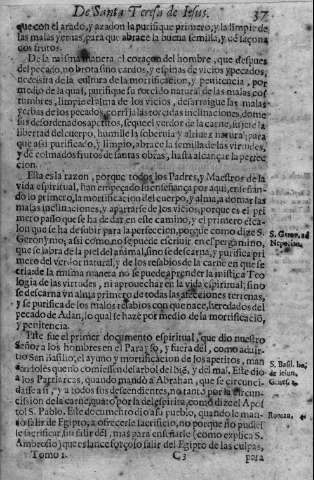 De Santa Teresa de Iesus. 37
que con el arado, y azadon la purifique primero, y la limpie de
las malas yeruas, para que abrace la buena semilla, y dè saçona
dos frutos.
De la misma manera el coraçon del hombre, que despues
del pecado, no brota sino cardos, y espinas de vicios y pecados,
necessita de la cultura de la mortificacion, y penitencia, por
medio de la qual, purifique su forcido natural de las malas cos
tumbres, limpie el alma de los vicios, desarraigue las malas
yerbas de los pecados, corrija las torcidas inclinaciones, dome
sus desordenados apetitos, seque el verdor de la carne, sujete la
libertad del cuerpo, humille la soberuia y altiuez natural; para
que assi purificado, y limpio, abrace la semilla de las virtudes,
y dè colmados frutos de santas obras, hasta alcançar la perfec
cion.
Esta es la razon, porque todos los Padres, y Maestros de la
vida espiritual, han empeçado su enseñança por aqui, enseñan
do lo primero, la mortificacion del cuerpo, y alma, a domar las
malas inclinaciones, y apartarse de los vicios; porque es el pri
mero passo que se ha de dar en este camino, y el primero esca
lon que se ha de subir para la perfeccion, porque como dize S.
Geronymo; assi como no se puede escriuir en el pergamino,
que se labra de la piel del animal, sino se descarna, y purifica pri
mero del verdor natural, y de los resabios de la carne en que se
cria: de la misma manera no se puede aprender la mistica Teo
logia de las virtudes, ni aprouechar en la vida espiritual; sino
se descarna vn alma primero de todas las aficciones terrenas,
y se purifica de los malos resabios con que nace, heredados del
pecado de Adan, lo qual se haze por medio de la mortificaciō,
y penitencia.
Este fue el primer documento espiritual, que dio nuestro
Señor a los hombres en el Parayso, y fuera dèl, como aduir
tio San Basilio, el ayuno y mortificacion de los apetitos, man
dandoles que no comiessen del arbol del bien, y del mal. Este dio
a los Patriarcas, quando mandò a Abrahan, que se circunci-
dasse a si, y a todos sus descendientes, no tanto por la circun-
cission de la carne, quāto por la del espiritu, como dize el Apos
tol S. Pablo. Este documento dio a su pueblo, quando le man-
dò salir de Egipto, a ofrecerle sacrificio, no porque no pudies
se sacrificar, sin salir dèl, mas para enseñarle (como explica S.
Ambrosio) que es lance forçoso salir del Egipto de las culpas,
Tomo 1. C 3 para
S. Geron. ad
Nepotian.
S. Basil. ho.
de ieiun.
Genes.
Roman.